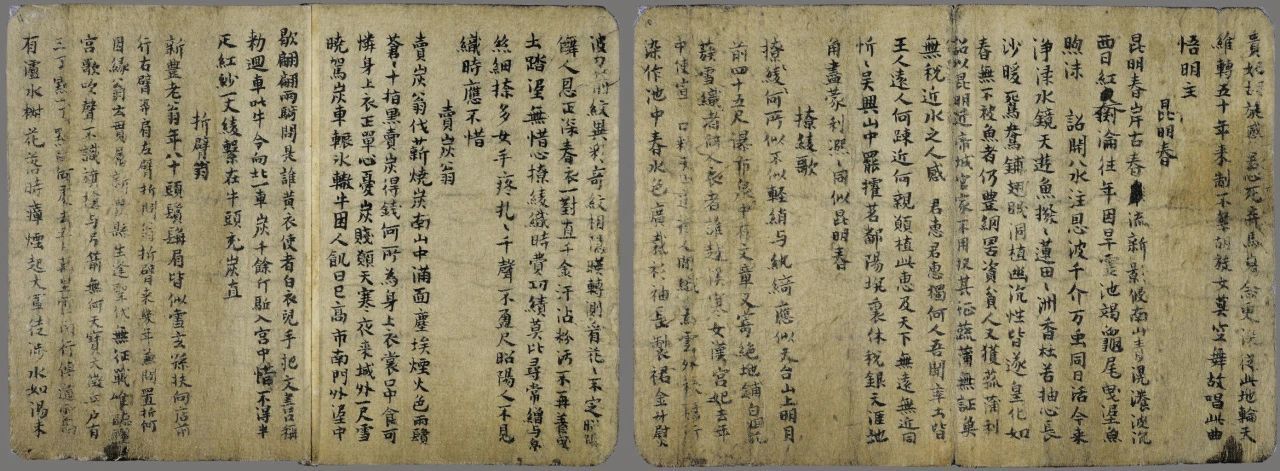 貴妃胡旋惑君心死弃馬嵬念更深從此地軸天
維轉五十年來制不禁胡旋女莫空舞故唱此曲
悟明主
昆明春
昆明春岸古春流新影候南山青滉瀁波沉
西日紅奫淪往年因旱靈池竭龜尾曳塗魚
煦沫 詔開八水注恩波千介万虫同日活今來
淨渌水鏡天遊魚撥〻蓮田〻洲香杜若抽心長
沙暖鴛鴦鋪翅眠洞植幽沉性皆遂皇化如
春無不被魚者仍豐網罟資貧人又獲菰蒲利
詔以昆明近帝城官家不用收其征菰蒲無証菓
無稅近水之人感 君惠君惠獨何人吾聞率土皆
王人遠人何疎近何親願植此惠及天下無遠無近同
忻〻吳興山中罷攉茗鄱陽坑裏休稅銀天涯地
角盡蒙利凞〻同似昆明春
撩綾歌
撩綾〻何所似不似輕綃与紈綺應似天台山上明月
前四十五尺瀑布泉中有文章又奇絕地鋪白煙花
蔟雪織者何人衣者誰越溪寒女漢宮妃去年
中使宣口勅天上取樣人間織〻為雲外秋鴈行
染作池中春水色廣裁衫袖長製裙金斗熨
波刀剪紋異彩奇紋相隱暎轉側看花〻不定
儛人恩正深春衣一對直千金汗沾粉污不再著曳
土踏泥無惜心撩綾織時費功績莫比尋常繒与帛
絲細撩多女手疼扎〻千聲不盈尺昭陽人不見
織時應不惜
賣炭翁
賣炭翁伐薪燒炭南山中滿面塵埃煙火色兩鬢
蒼〻十指黑賣炭得錢何所為身上衣裳口中食可
憐身上衣正單心憂炭賤願天寒夜來城外一尺雪
曉駕炭車輾氷轍牛困人飢日已高市南門外泥中
歇翩翩兩騎問是誰黃衣使者白衣兒手把文書口稱
勑迴車叱牛令向北一車炭千餘斤駈入宮中惜不得半
疋紅紗一丈綾繫在牛頭充炭直
折臂翁
新豐老翁年八十頭鬢鬚眉皆似雪玄孫扶向店前
行右臂憑肩左臂折問翁折臂來幾年兼問置折何
因緣翁云貫屬新豐縣生逢聖代無征戰唯聽梨
宮歌吹聲不識旗槍与弓箭無何天寶大徵兵戶有
三丁點一丁點得驅將何處去五月萬里雲南行傳道雲南
有瀘水樹花落時瘴煙起大軍徒涉水如湯未